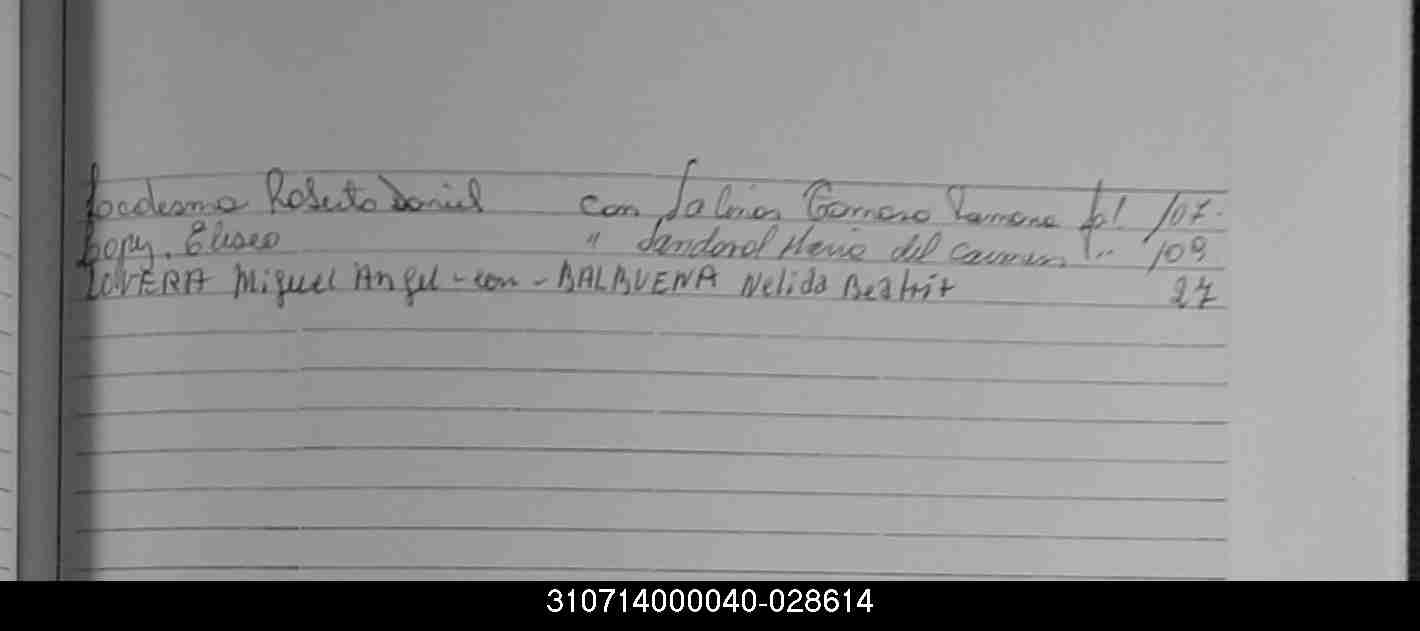 Roberto Daniel con Salinas Ramona fol. 107.
Lopez, Eliseo " Sandoval Maria del Carmen 109
LOVERA Miguel Angel - con - BALBUENA Nelida Beatriz 27
310714000040-028614